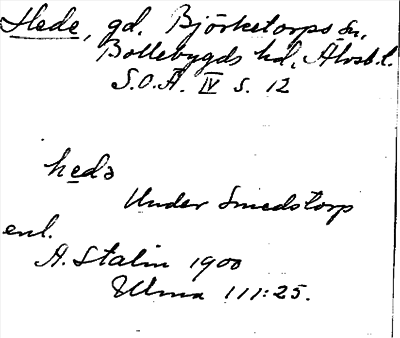 Hede, gd. Björketorps sn,
Bollebygds hd, Älvsb.l.
S.O.Ä. IV s. 12
hedə
Under Smedstorp
enl.
A. Stalin 1900
Ulma 111:25.